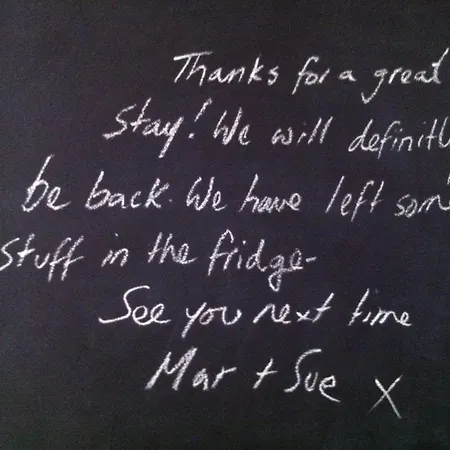 Thanks for a great
Stay! We will definitl
be back. We have left som
stuff in the fridge-
See you next time
Mar + Sue X